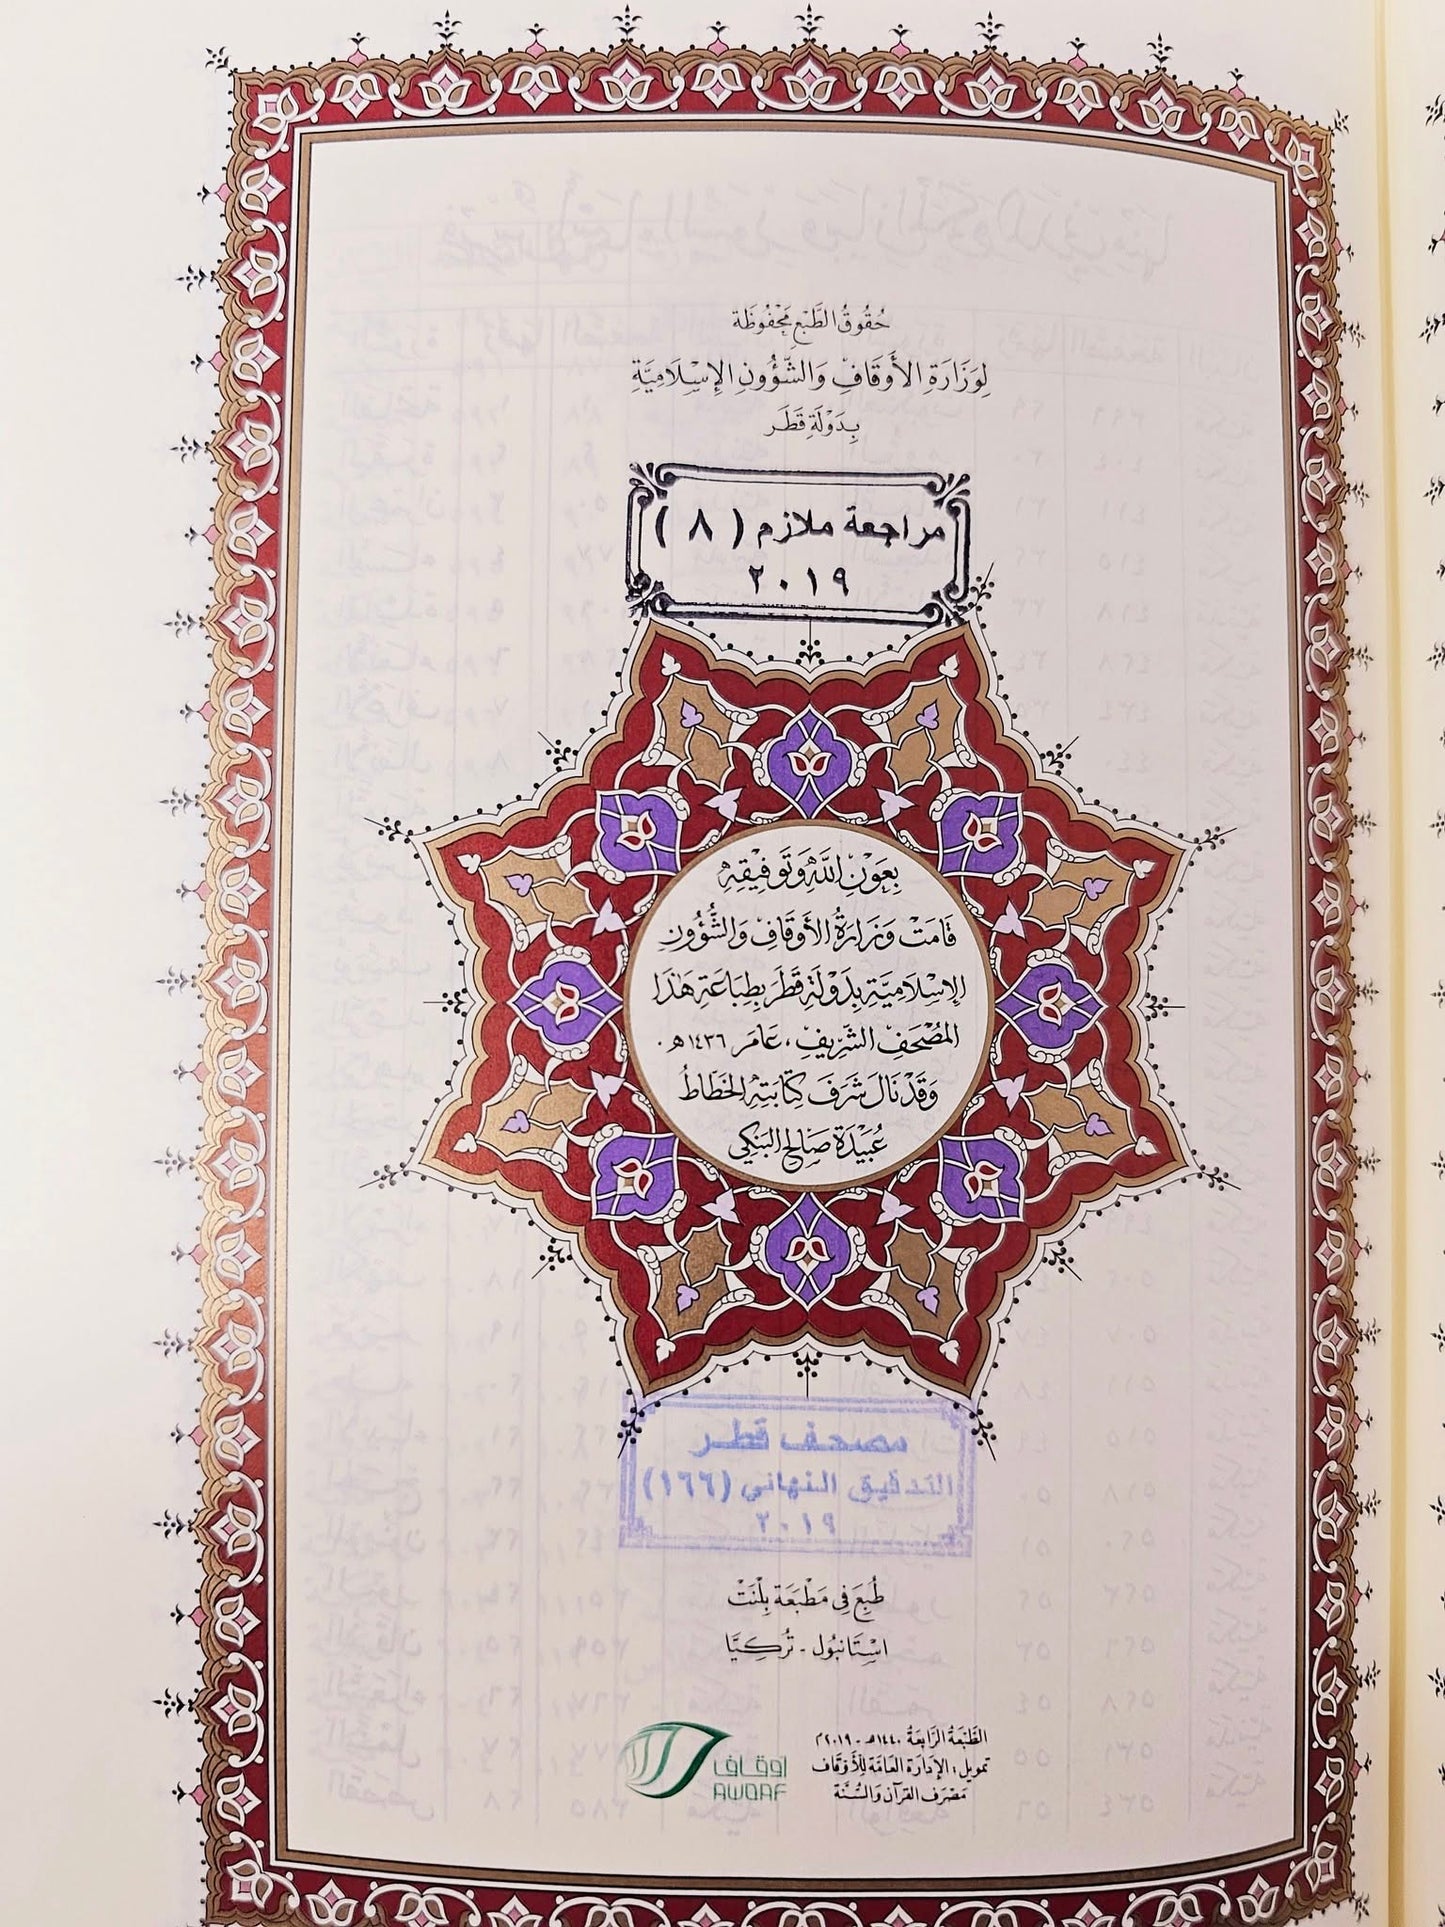 حُقُوقُ الطَّبْعِ مَحْفُوظَة
لِوَزَارَةِ الأَوْقَافِ وَالشُّؤُونِ الإِسْلَامِيَّةِ
بِدَوْلَةِ قَطَر
مراجعة ملازم ( ٨ )
٢٠١٩
بِعَوْنِ اللَّهِ وَتَوْفِيْقِهِ
قَامَتْ وَزَارَةُ الأَوْقَافِ وَالشُّؤُونِ
الإِسْلَامِيَّةِ بِدَوْلَةِ قَطَر بِطِبَاعَةِ هَٰذَا
المُصْحَفِ الشَّرِيفِ، عَامَ ١٤٣٦ هـ.
وَقَدْ نَالَ شَرَفَ كِتَابَتِهِ الخَطَّاطُ
عُبَيْدَة صَالِح البَنْكِي
مصحف قطر
التدقيق النهائي (١٦٦)
٢٠١٩
طُبِعَ فِي مَطْبَعَة بِلْنَتْ
اسْتَانبُول - تُرْكِيَّا
الطَّبْعَةُ الرَّابِعَةُ ١٤٤٠هـ - ٢٠١٩م
تمويل: الإِدَارَة العَامَّة لِلأَوْقَاف
مَصْرَف القُرآن وَالسُّنَّة
أوقاف
AWQAF